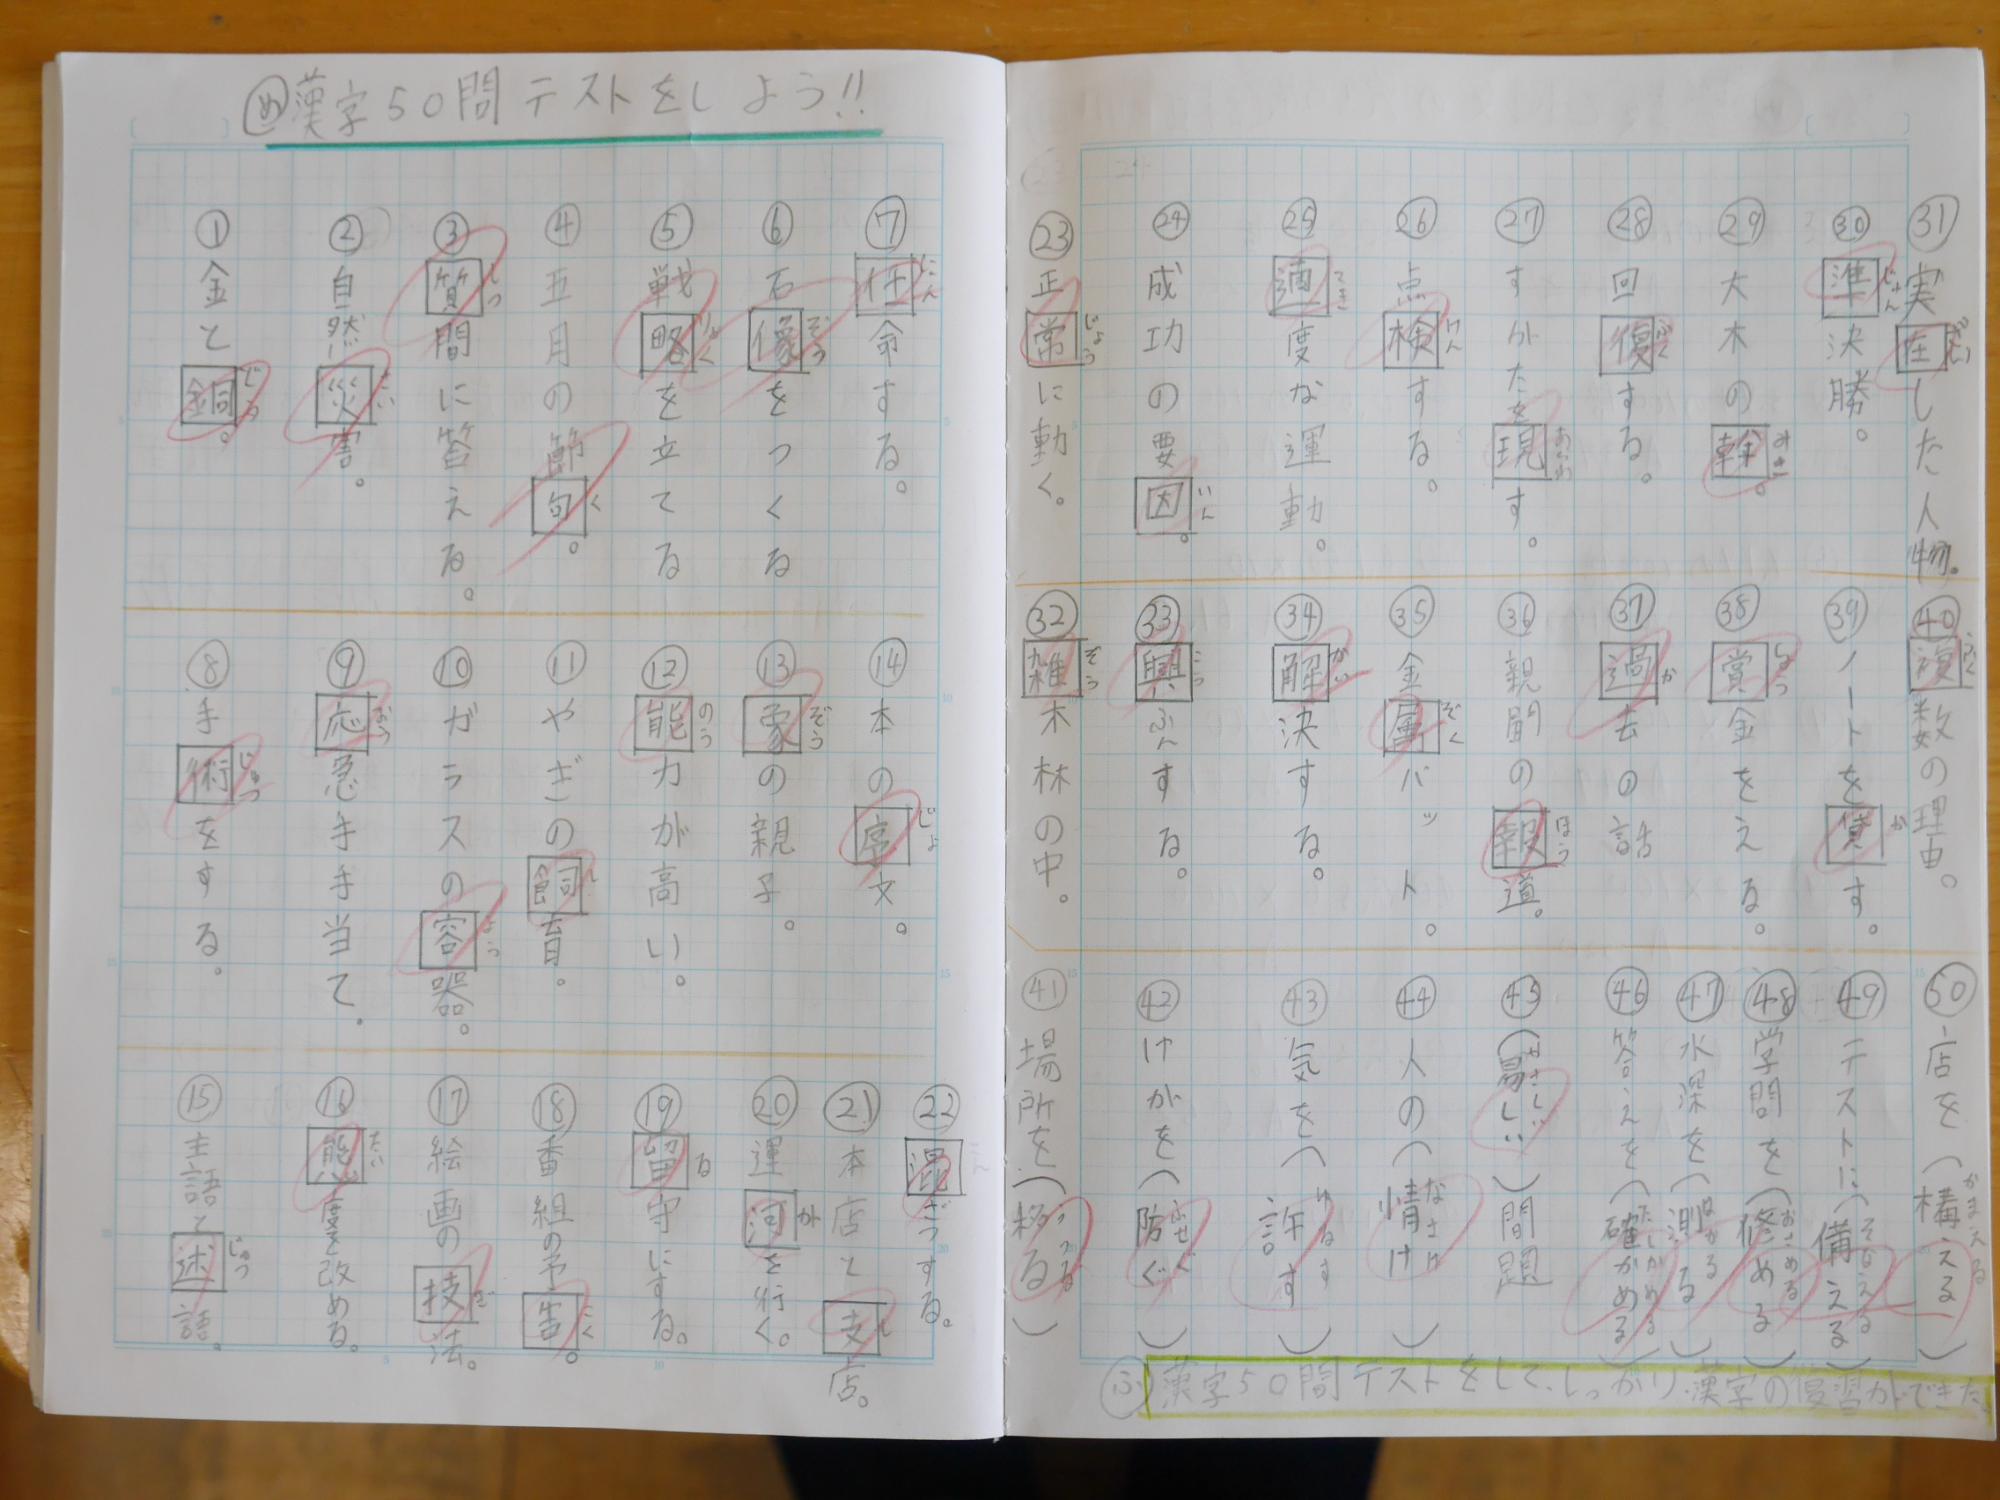 め 漢字50問テストをしよう!!
① 金と銅。 どう
② 自然災害。 さい
③ 質問に答える。 しつ
④ 五月の節句。 く
⑤ 戦略を立てる りゃく
⑥ 石像をつくる ぞう
⑦ 任命する。 にん
⑧ 手術をする。 じゅつ
⑨ 応急手手当て。 おう
⑩ ガラスの容器。 よう
⑪ やぎの飼育。 し
⑫ 能力が高い。 のう
⑬ 象の親子。 ぞう
⑭ 本の序文。 じょ
⑮ 主語と述語。 じゅつ
⑯ 態度を改める。 たい
⑰ 絵画の技法。 ぎ
⑱ 番組の予告。 こく
⑲ 留守にする。 る
⑳ 運河を行く。 か
㉑ 本店と支店。 し
㉒ 混ざつする。 こん
㉓ 正常に動く。 じょう
㉔ 成功の要因。 いん
㉕ 適度な運動。 てき
㉖ 点検する。 けん
㉗ すがたを現す。 あらわ
㉘ 回復する。 ふく
㉙ 大木の幹。 みき
㉚ 準決勝。 じゅん
㉛ 実在した人物。 ざい
㉜ 雑木林の中。 ぞう
㉝ 興ふんする。 こう
㉞ 解決する。 かい
㉟ 金属バット。 ぞく
㊱ 親聞の報道。 ほう
㊲ 過去の話 か
㊳ 賞金をえる。 しょう
㊴ ノートを貸す。 か
㊵ 複数の理由。 ふく
㊶ 場所を(移る) うつる
㊷ けがを(防ぐ) ふせぐ
㊸ 気を(許す) ゆるす
㊹ 人の(情け) なさけ
㊺ (易しい)問題 やさしい
㊻ 答えを(確かめる) たしかめる
㊼ 水深を(測る) はかる
㊽ 学問を(修める) おさめる
㊾ テストに(備える) そなえる
㊿ 店を(構える) かまえる
ふ 漢字50問テストをして、しっかり漢字の復習ができた。